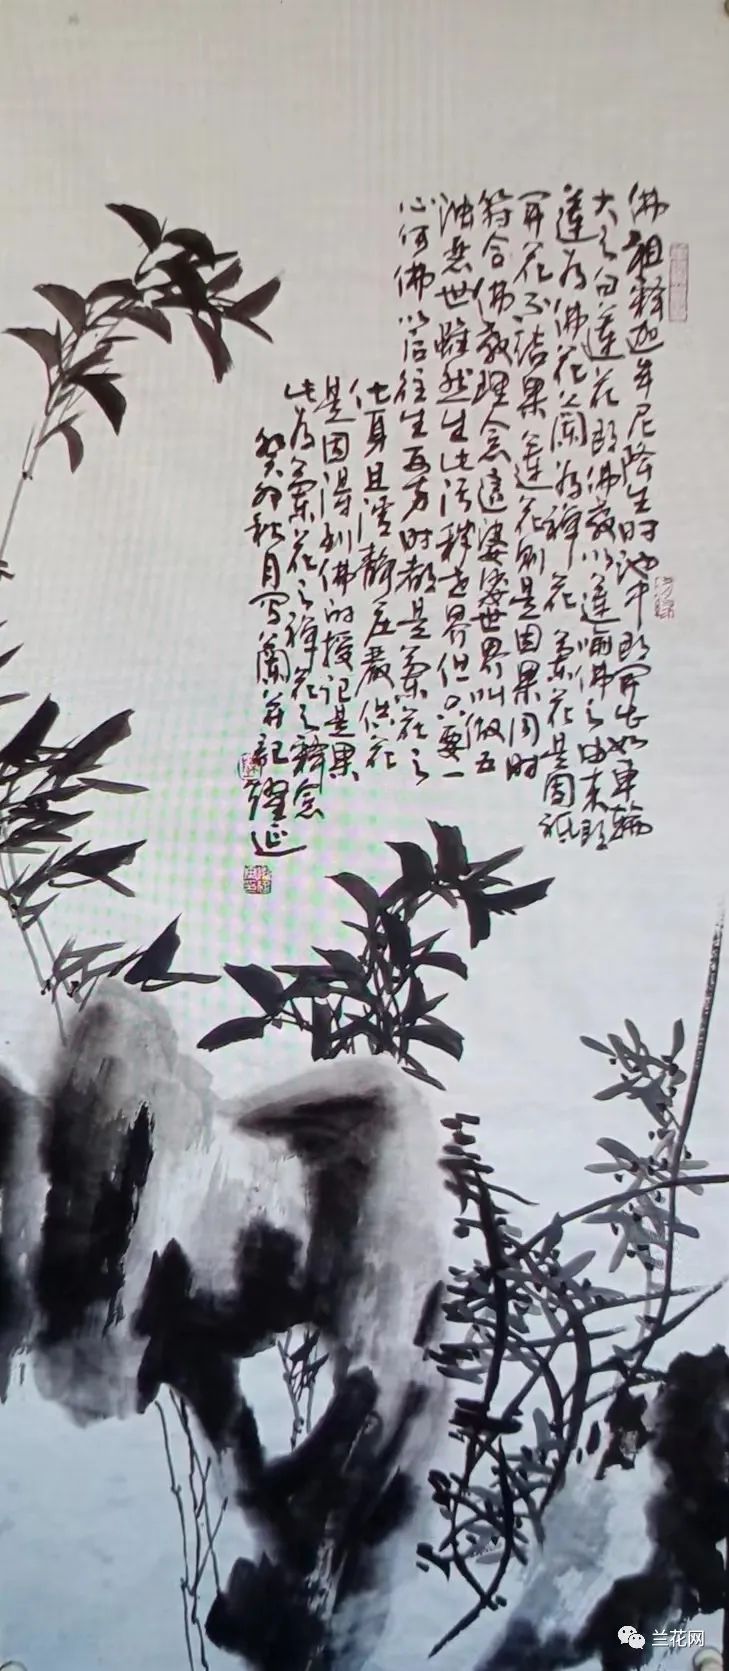 佛祖释迦牟尼降生时池中即开出如车轮
大之白莲花即佛教以莲喻佛之由来即
莲为佛花兰为禅花 兰花是圆祗
开花不结果 莲花则是因果同时
符合佛教理念这婆娑世界叫做五
浊恶世虽然生此污秽世界但只要一
心向佛以后往生西方时都是兰花之
化身且清静庄严供花
是因得到佛的授记是果
此为兰花之禅花之释念
癸卯秋月写兰并记 延
兰花网